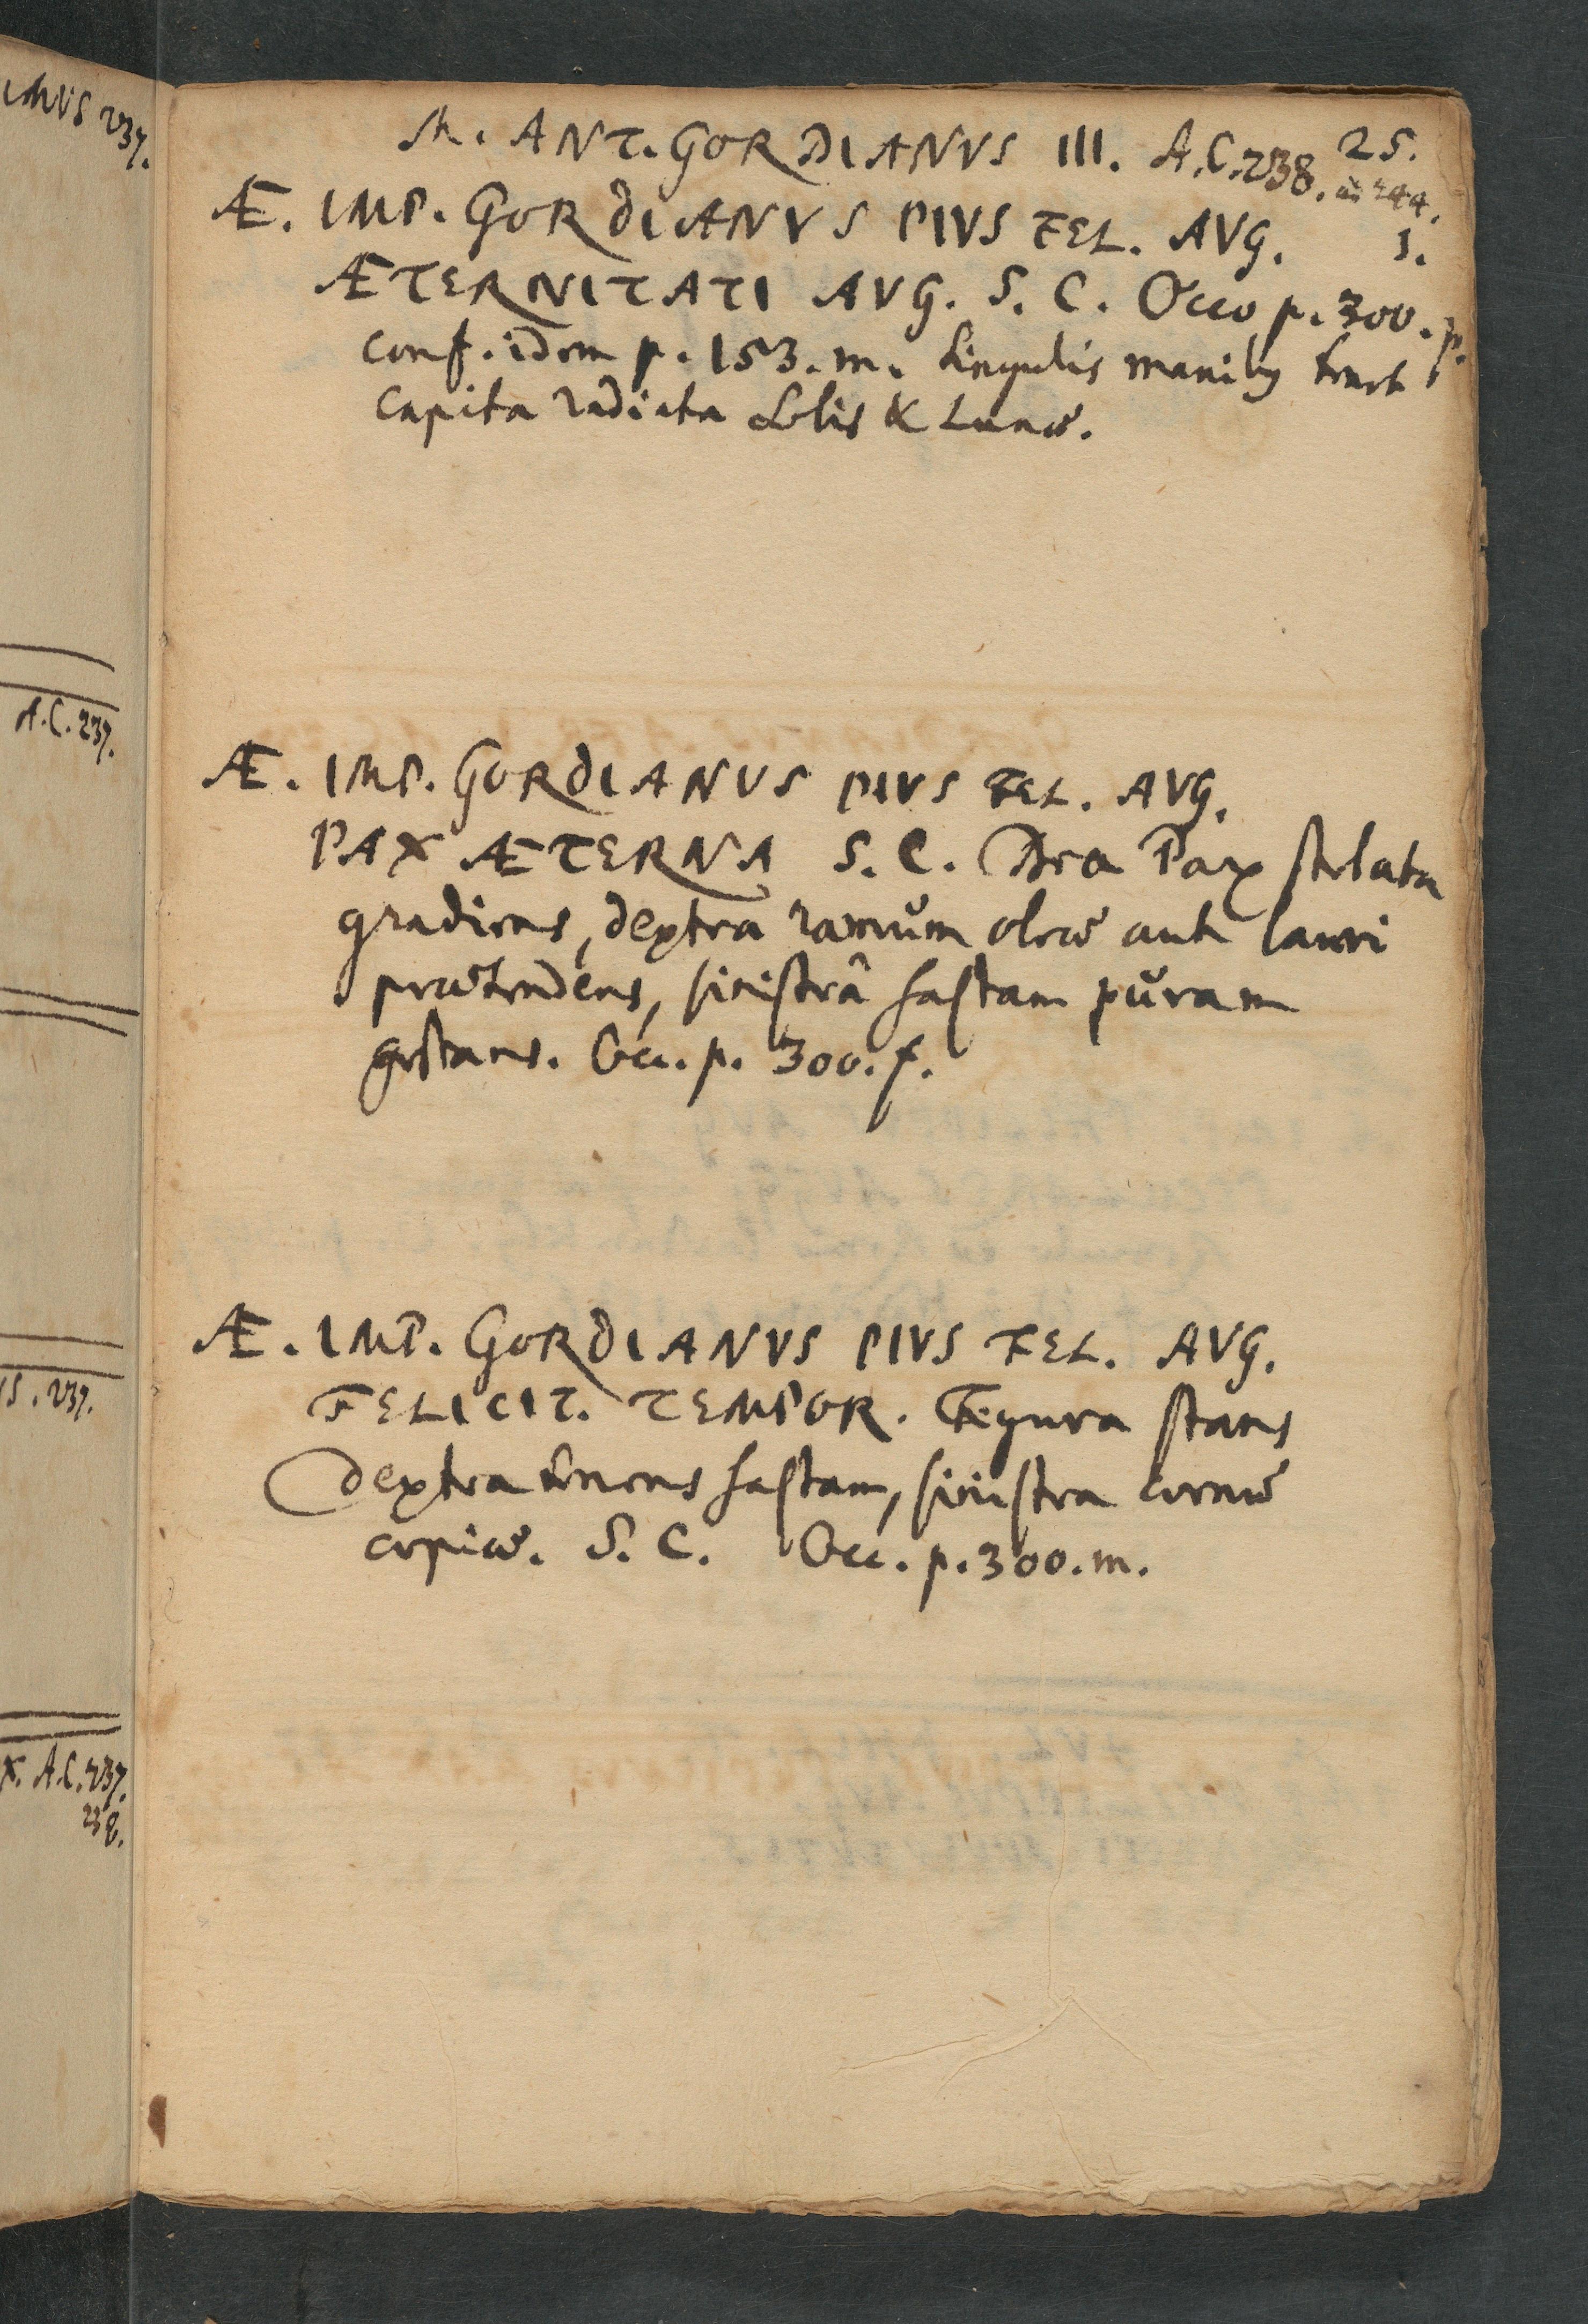 IMVS 237.
A.C. 237.
IS. 237.
X. A.C. 237.
238.
M. ANT. GORDIANVS III. A.C. 238. 25.
244.
Æ. IMP. GORDIANVS PIVS FEL. AVG. 1.
ÆTERNITATI AVG. S. C. Occo p. 300. p.
conf. idem p. 153. m. singulis manibq tenet
capita radiata Solis & Lunæ.
Æ. IMP. GORDIANVS PIVS FEL. AVG.
PAX ÆTERNA S. C. Dea Pax stolata
gradiens, dextra ramum oleæ aut lauri
prætendens, sinistrâ hastam puram
gestans. Occ. p. 300. f.
Æ. IMP. GORDIANVS PIVS FEL. AVG.
FELICIT. TEMPOR. Figura stans
dextra tenens hastam, sinistra cornu
copiæ. S. C. Occ. p. 300. m.